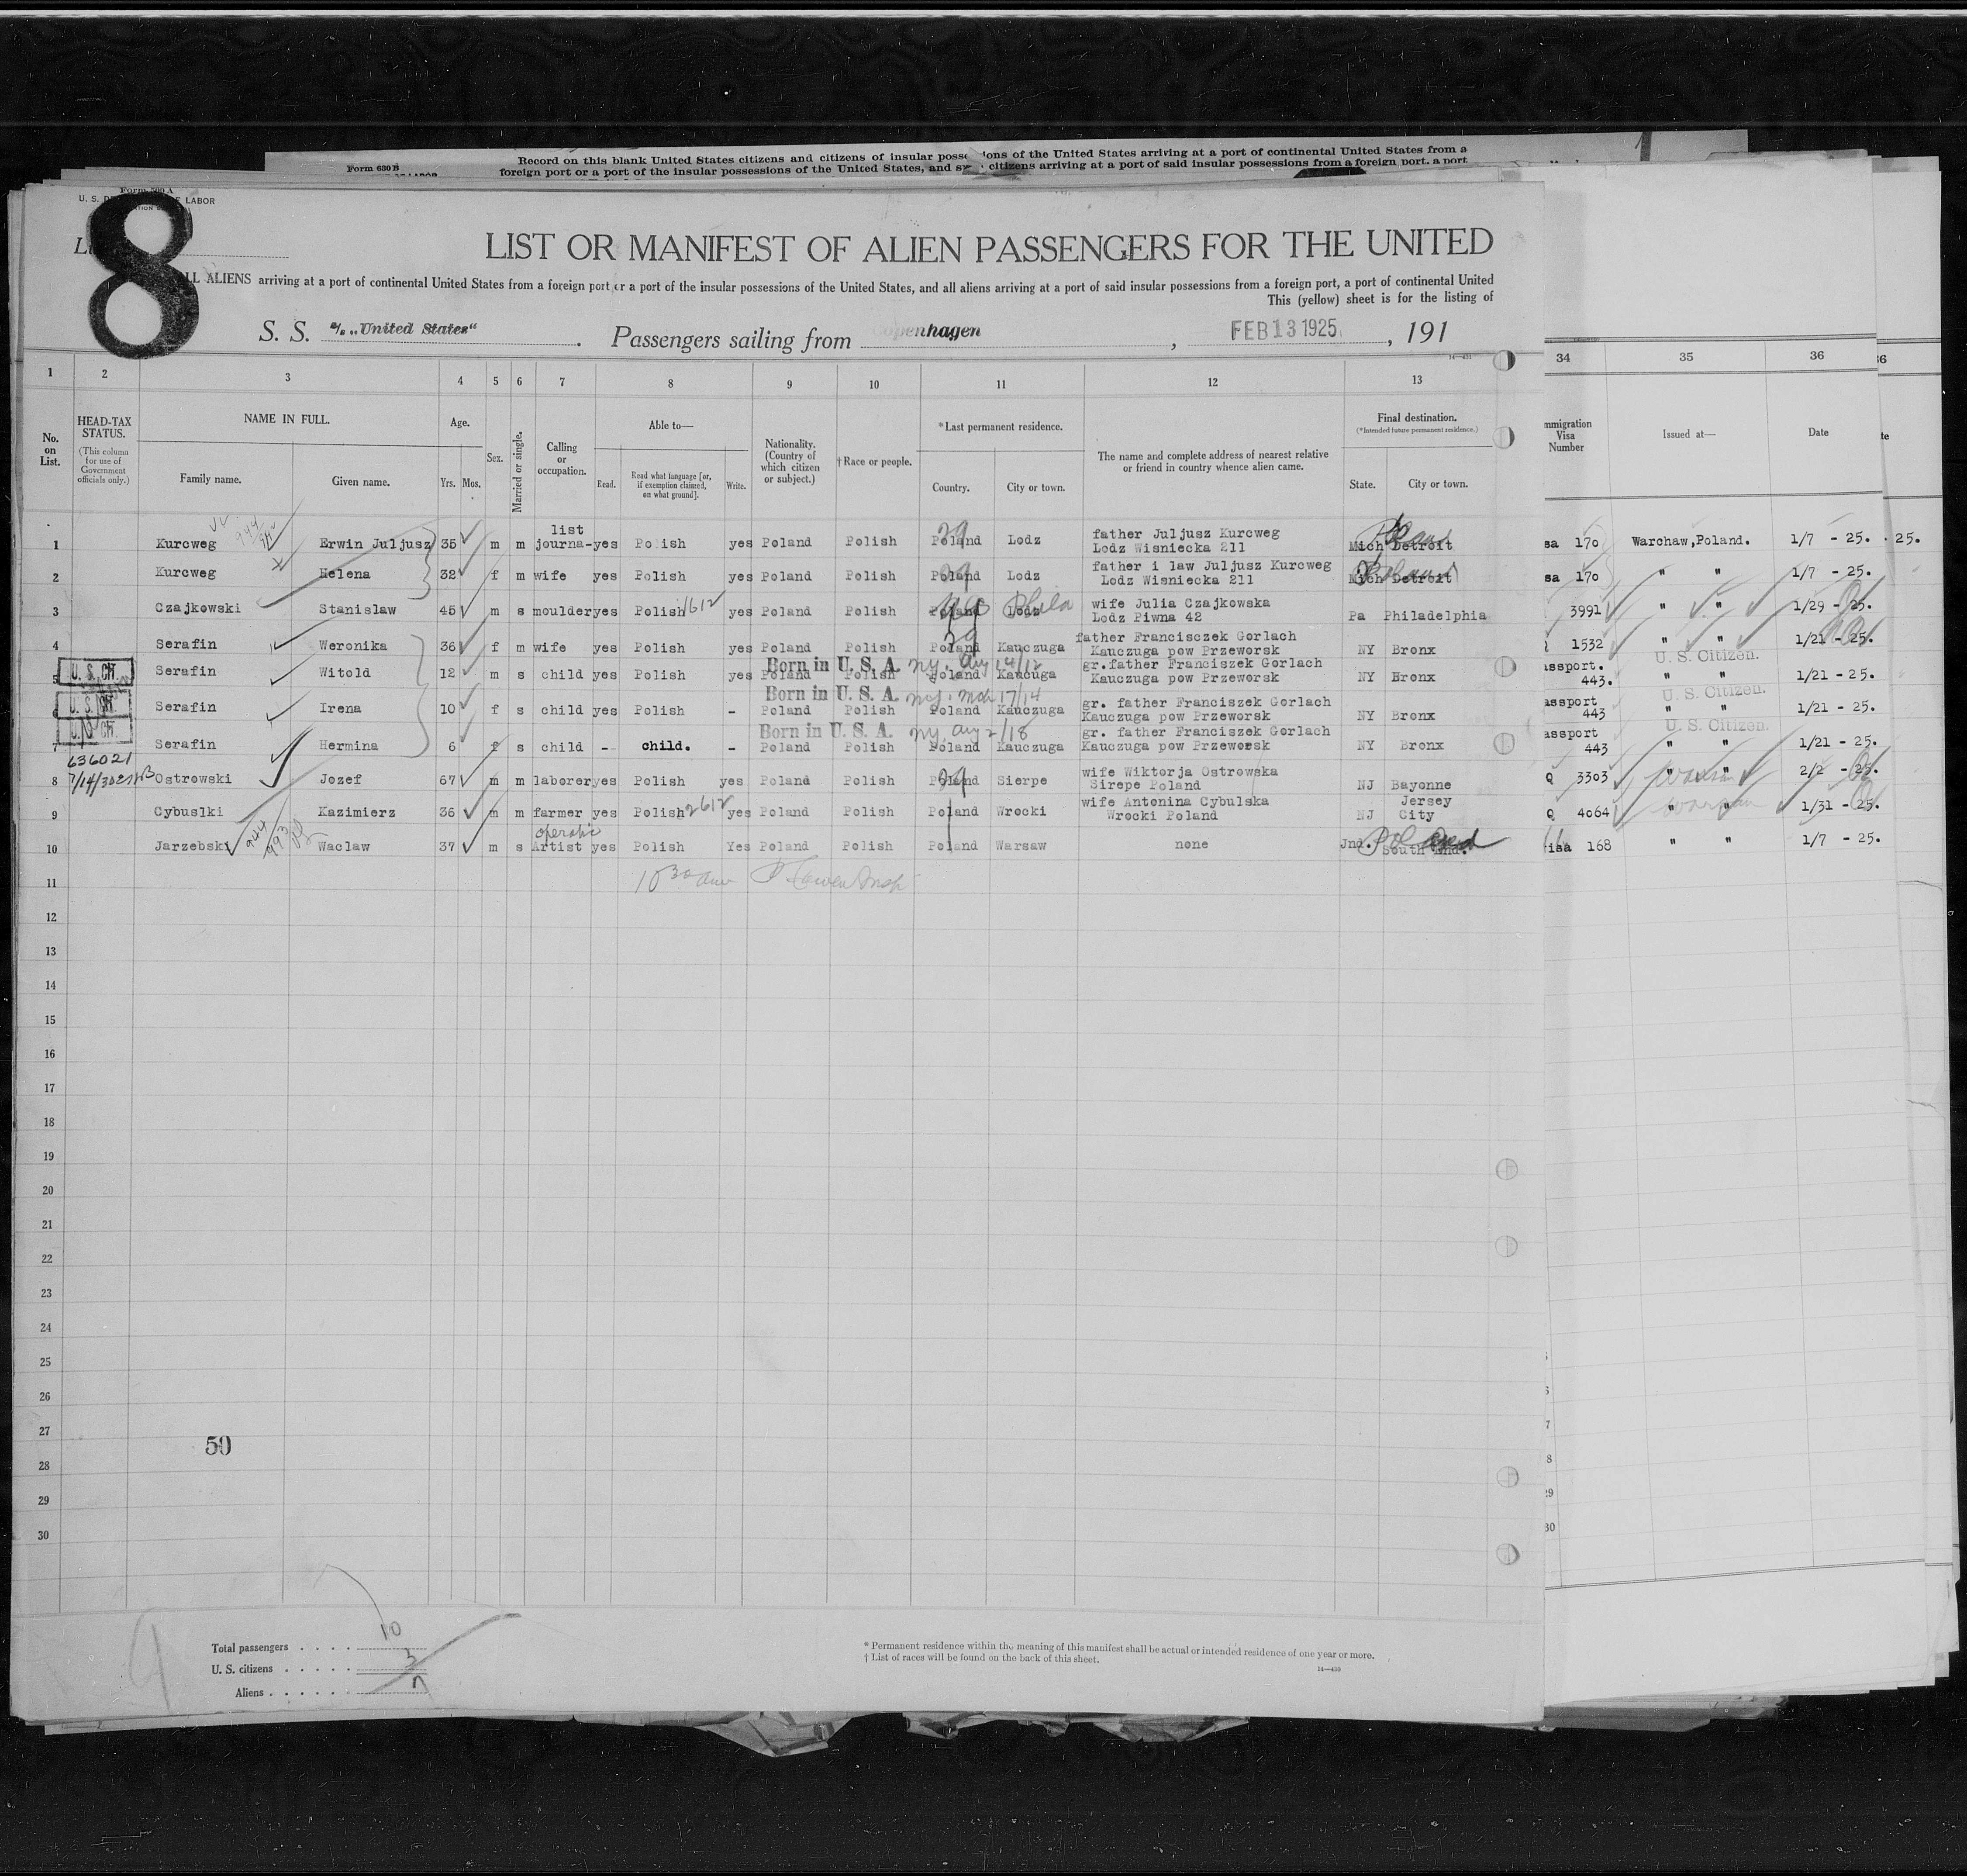 Form 630 B
Record on this blank United States citizens and citizens of insular possessions of the United States arriving at a port of continental United States from a
foreign port or a port of the insular possessions of the United States, and citizens arriving at a port of said insular possessions from a foreign port, a port
Form 500 A
U. S. LABOR
8
LIST OR MANIFEST OF ALIEN PASSENGERS FOR THE UNITED
ALL ALIENS arriving at a port of continental United States from a foreign port or a port of the insular possessions of the United States, and all aliens arriving at a port of said insular possessions from a foreign port, a port of continental United
This (yellow) sheet is for the listing of
S. S. s/s „United States" . Passengers sailing from Copenhagen , FEB 13 1925 , 191
1 2 3 4 5 6 7 8 9 10 11 12 13 34 35 36
No. on List.
HEAD-TAX STATUS.
(This column for use of Government officials only.)
NAME IN FULL.
Family name. Given name.
Age.
Yrs. Mos.
Sex.
Married or single.
Calling or occupation.
Able to—
Read. Read what language [or, if exemption claimed, on what ground]. Write.
Nationality. (Country of which citizen or subject.)
†Race or people.
*Last permanent residence.
Country. City or town.
The name and complete address of nearest relative or friend in country whence alien came.
Final destination.
(*Intended future permanent residence.)
State. City or town.
mmigration Visa Number
Issued at—
Date
1 Kurcweg Erwin Juljusz 35 m m journa-list yes Polish yes Poland Polish Poland Lodz father Juljusz Kurcweg Lodz Wisniecka 211 Mich Detroit sa 170 Warchaw,Poland. 1/7 - 25. 25.
2 Kurcweg Helena 32 f m wife yes Polish yes Poland Polish Poland Lodz father i law Juljusz Kurcweg Lodz Wisniecka 211 Mich Detroit sa 170 " " 1/7 - 25.
3 Czajkowski Stanislaw 45 m s moulder yes Polish 1612 yes Poland Polish Poland Lodz Phila wife Julia Czajkowska Lodz Piwna 42 Pa Philadelphia 3991 " " 1/29 - 25.
4 Serafin Weronika 36 f m wife yes Polish yes Poland Polish Poland 39 Kauczuga father Francisczek Gorlach Kauczuga pow Przeworsk NY Bronx 1532 " " 1/21 - 25.
U. S. CIT. Born in U. S. A. ny. Aug 14/12 U. S. Citizen.
5 Serafin Witold 12 m s child yes Polish yes Poland Polish Poland Kaucuga gr.father Franciszek Gorlach Kauczuga pow Przeworsk NY Bronx assport. 443. " " 1/21 - 25.
U. S. CIT. Born in U. S. A. 17/14 U. S. Citizen.
6 Serafin Irena 10 f s child yes Polish - Poland Polish Poland Kauczuga gr. father Franciszek Gorlach Kauczuga pow Przeworsk NY Bronx assport 443 " " 1/21 - 25.
U. S. CIT. Born in U. S. A. ny. Aug 2/18 U. S. Citizen.
7 Serafin Hermina 6 f s child - child. - Poland Polish Poland Kauczuga gr. father Franciszek Gorlach Kauczuga pow Przeworsk NY Bronx assport 443 " " 1/21 - 25.
636021
8 Ostrowski Jozef 67 m m laborer yes Polish yes Poland Polish Poland 39 Sierpe wife Wiktorja Ostrowska Sirepe Poland NJ Bayonne Q 3303 " " Warsaw 2/2 - 25.
9 Cybuslki Kazimierz 36 m m farmer yes Polish 2612 yes Poland Polish Poland Wrocki wife Antonina Cybulska Wrocki Poland NJ Jersey City Q 4064 " " Warsaw 1/31 - 25.
10 Jarzebski Waclaw 37 m s operatic Artist yes Polish Yes Poland Polish Poland Warsaw none Jnd. South Bnd. Poland isa 168 " " 1/7 - 25.
11
12
13
14
15
16
17
18
19
20
21
22
23
24
25
26
27
50
28
29
30
Total passengers . . . . 10
U. S. citizens . . . . . 3
Aliens . . . . . . 7
* Permanent residence within the meaning of this manifest shall be actual or intended residence of one year or more.
† List of races will be found on the back of this sheet.
14—430